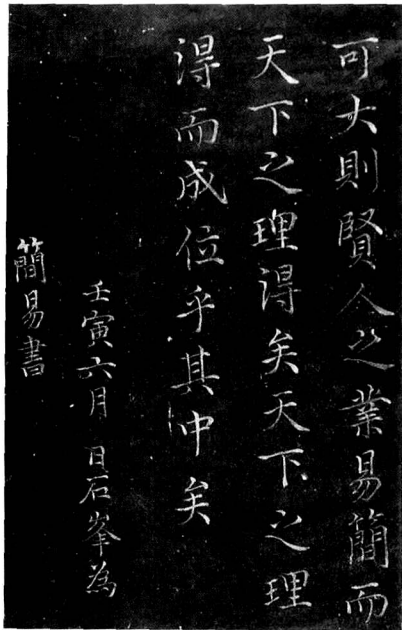 可大則賢人之業易簡而
天下之理得矣天下之理
得而成位乎其中矣
壬寅六月 日石峯為
簡易書